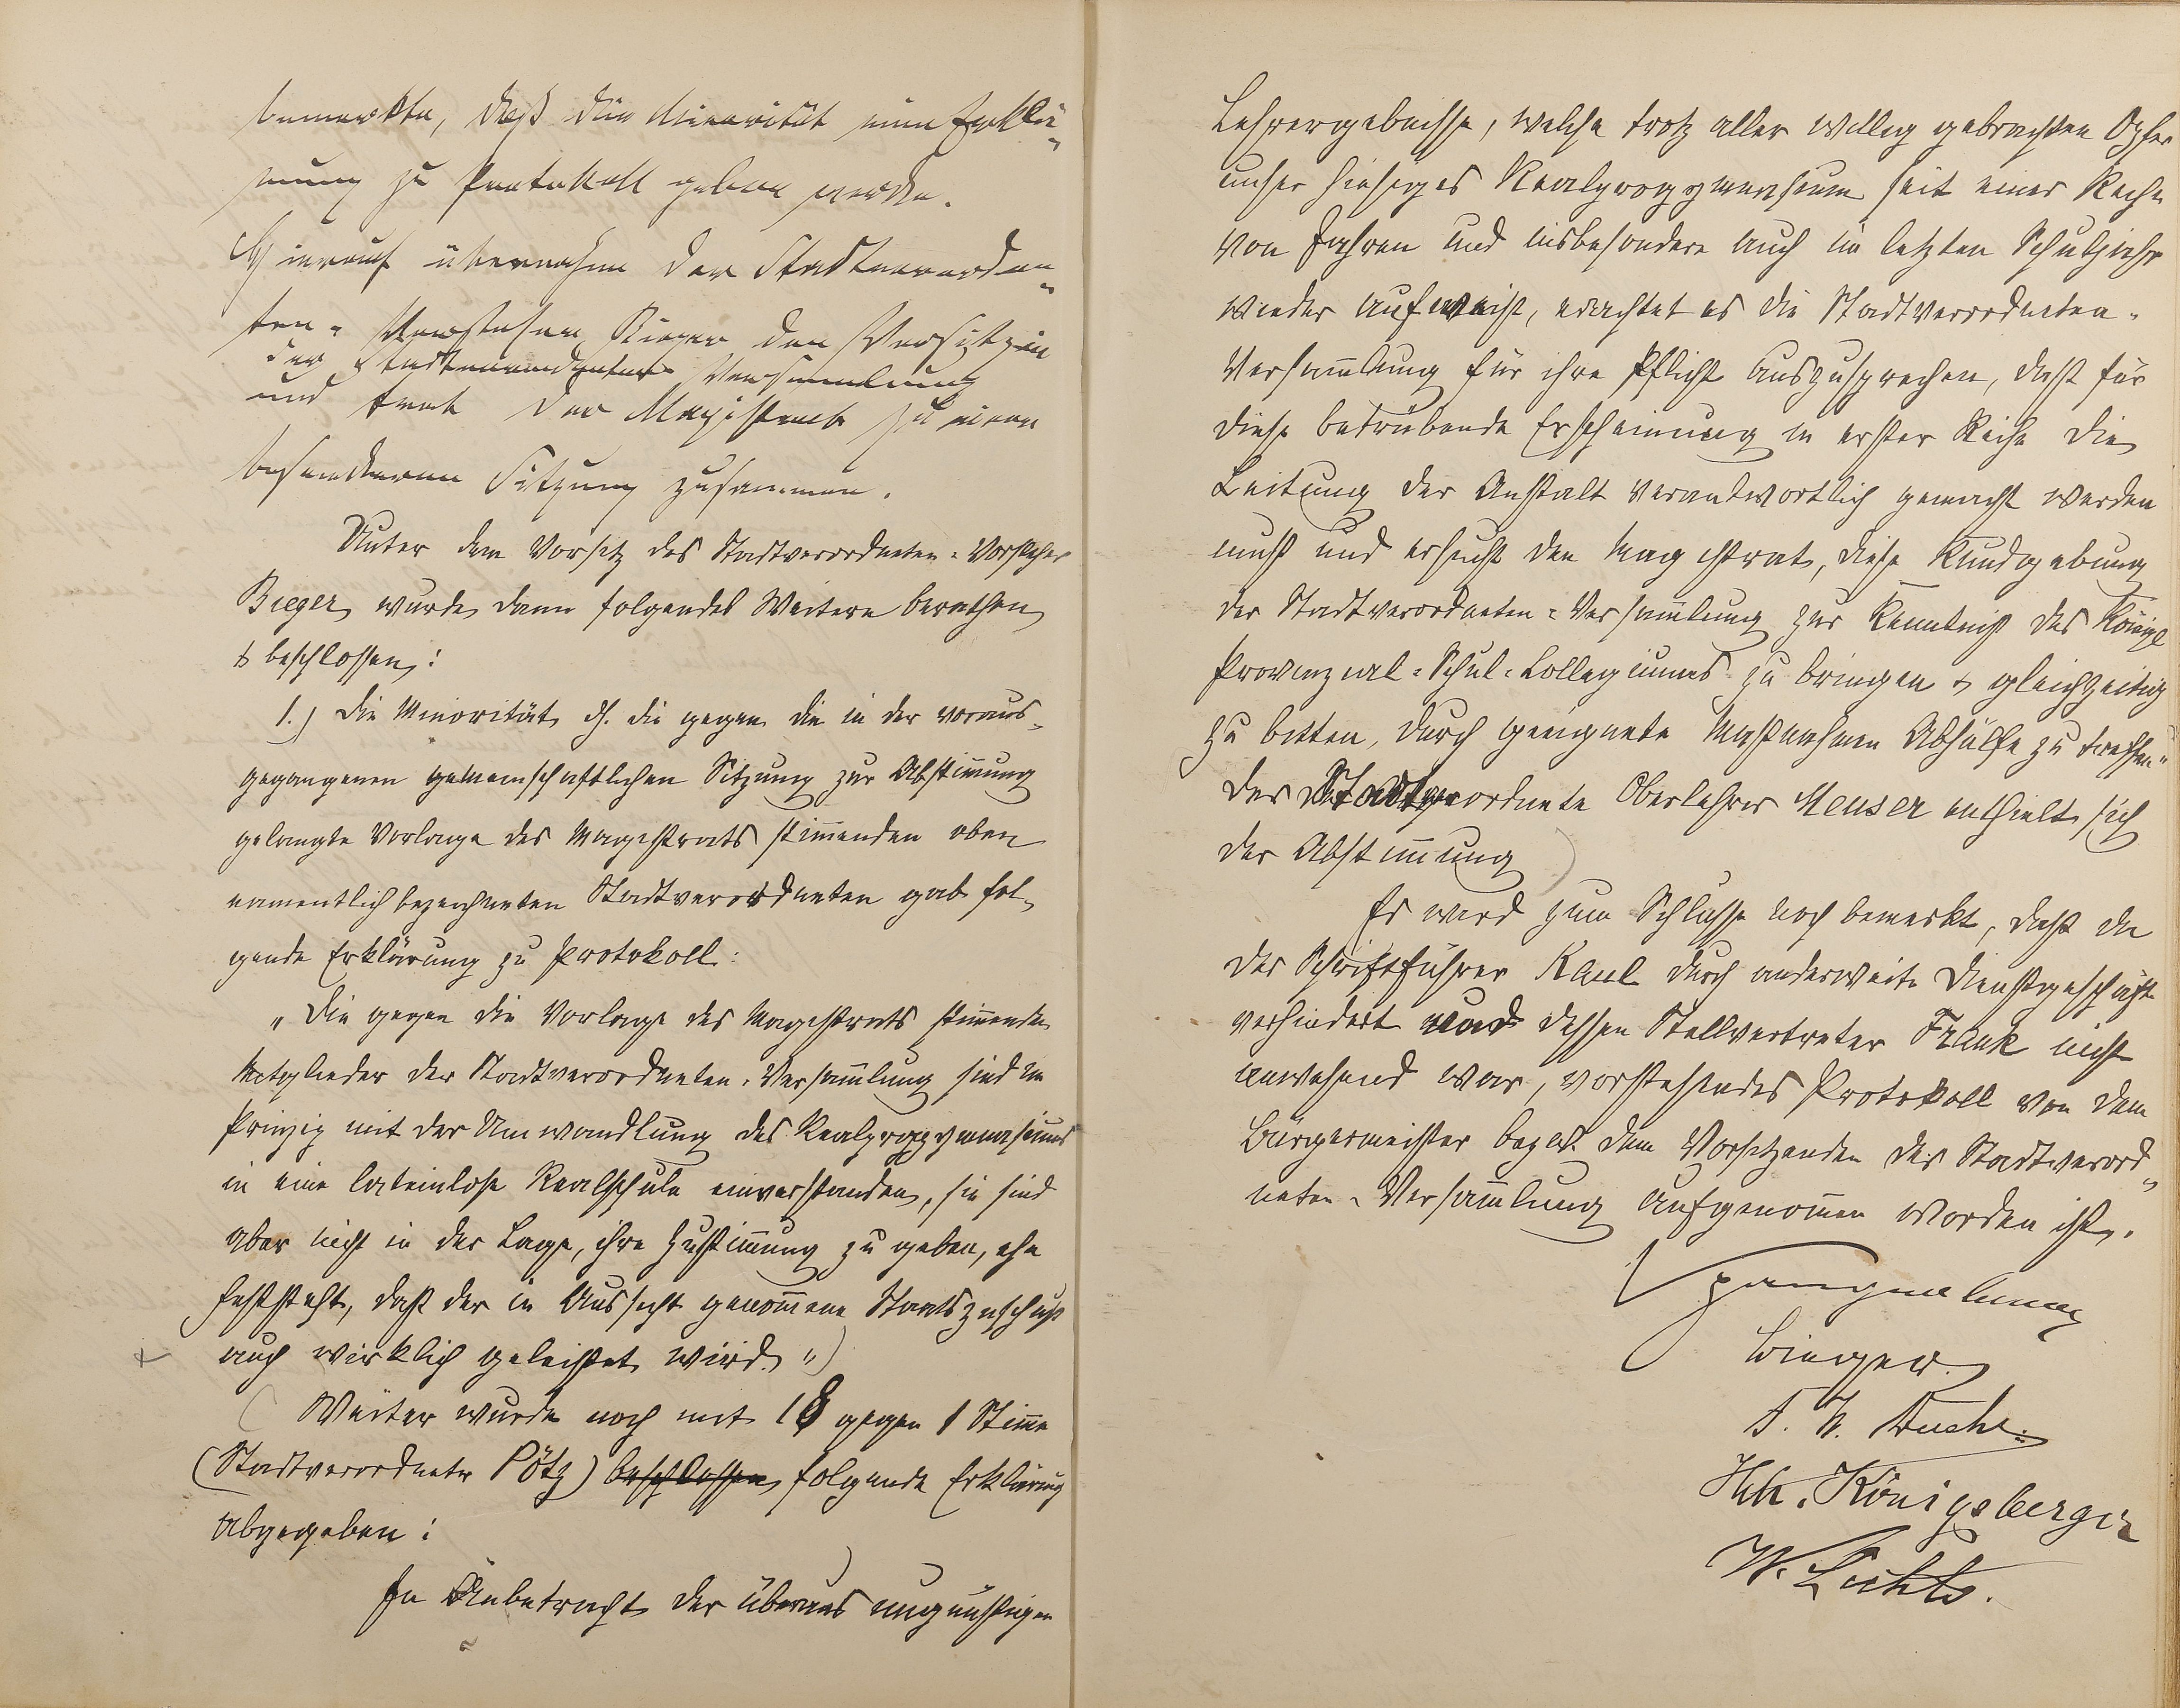 bemerkte, daß die Minorität eine Erklä-
rung zu Protokoll geben werde.
Hierauf übernahm der Stadtverordne-
ten-Vorsteher Bieger den Vorsitz in
der Stadtverordneten-Versammlung
und trat der Magistrat zu einer
besonderen Sitzung zusammen.
Unter dem Vorsitz des Stadtverordneten-Vorsteher
Bieger wurde dann folgendes Weitere berathen
& beschlossen:
1.) Die Minorität d. h. die gegen die in der voraus-
gegangenen gemeinschaftlichen Sitzung zur Abstimmung
gelangte Vorlage des Magistrats stimmenden oben
namentlich bezeichneten Stadtverordneten gab fol-
gende Erklärung zu Protokoll:
„Die gegen die Vorlage des Magistrats stimmenden
Mitglieder der Stadtverordneten-Versammlung sind im
Prinzip mit der Umwandlung des Realprogymnasiums
in eine lateinlose Realschule einverstanden, sie sind
aber nicht in der Lage, ihre Zustimmung zu geben, ehe
feststeht, daß der in Aussicht genommene Staatszuschuß
auch wirklich geleistet wird.“)
( Weiter wurde noch mit 18 gegen 1 Stimme
(Stadtverordneter Pötz) beschlossen folgende Erklärung
abgegeben:
In Anbetracht der überaus ungünstigen
Lehrergebnisse, welche trotz aller willig gebrachten Opfer
unser hiesiges Realprogymnasium seit einer Reihe
von Jahren und insbesondere auch im letzten Schuljahr
wieder aufweist, erachtet es die Stadtverordneten-
Versammlung für ihre Pflicht auszusprechen, daß für
diese betrübende Erscheinung in erster Reihe die
Leitung der Anstalt verantwortlich gemacht werden
muß und ersucht den Magistrat, diese Kundgebung
der Stadtverordneten-Versammlung zur Kenntniß des Königl
Provinzial-Schul-Collegiums zu bringen & gleichzeitig
zu bitten, durch geeignete Maßnahmen Abhülfe zu treffen“
Der Stadtverordnete Oberlehrer Meuser enthielt sich
der Abstimmung)
Es wird zum Schlusse noch bemerkt, daß da
der Schriftführer Kaul durch anderweite Dienstgeschäfte
verhindert und dessen Stellvertreter Frank nicht
anwesend war, vorstehendes Protokoll von dem
Bürgermeister bezw. dem Vorsitzenden der Stadtverord-
neten-Versammlung aufgenommen worden ist.
Bieger
Hch. Königsberger